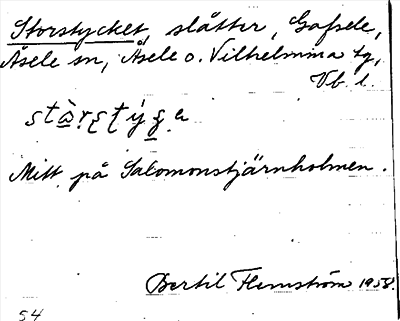 Storstycket, slåtter, Gafsele,
Åsele sn, Åsele o. Vilhelmina tg,
Vb. l.
Mitt på Salomonstjärnholmen.
Bertil Flemström 1958.
54